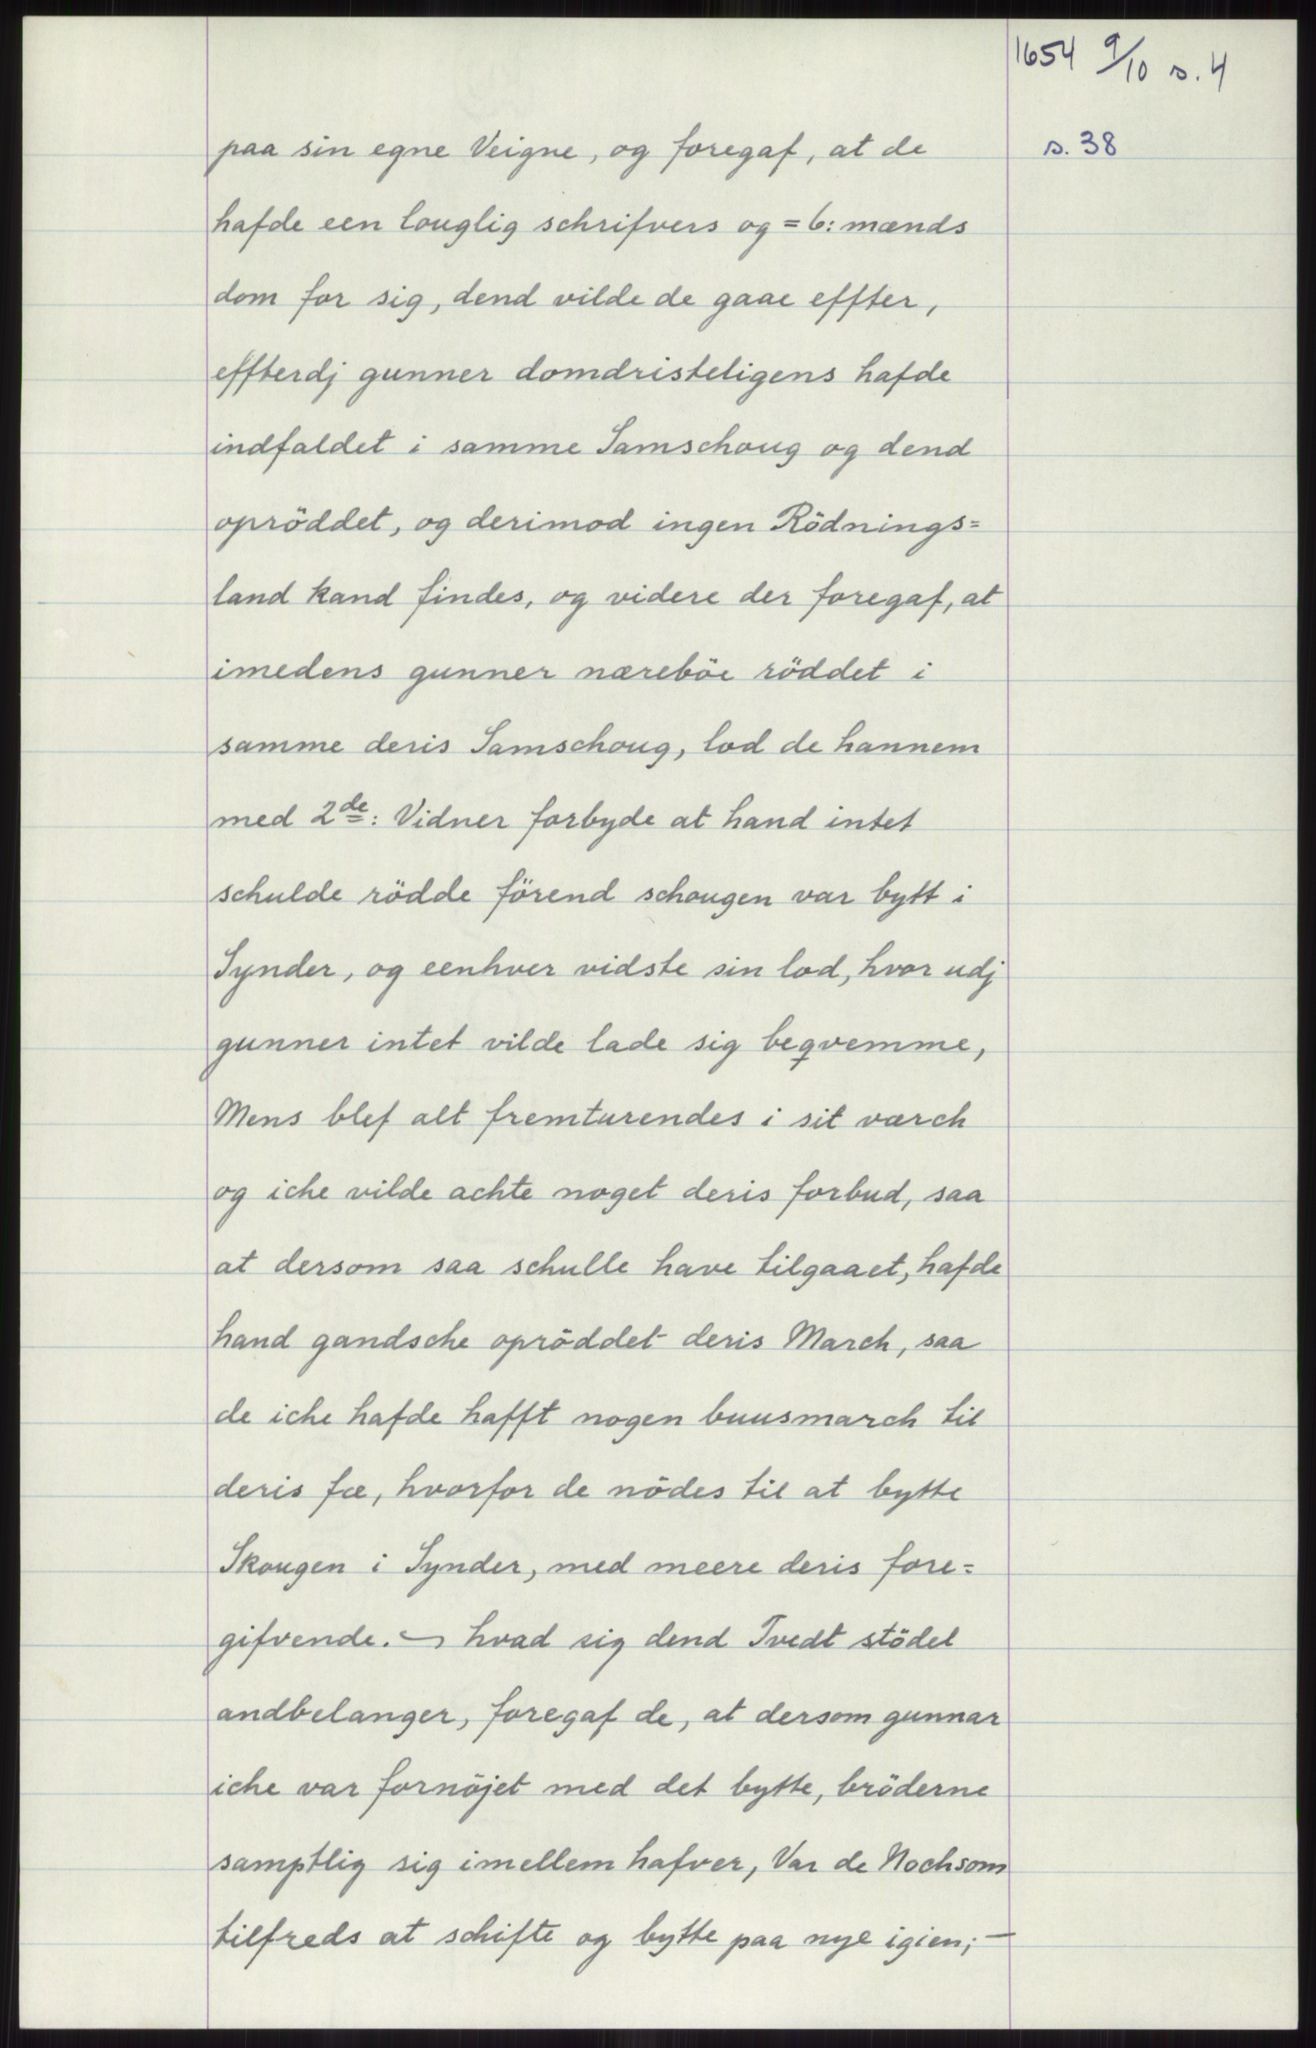 1654 9/10 s. 4
s. 38
paa sin egne Veigne, og foregaf, at de
hafde een louglig schrifvers og = 6: mænds
dom for sig, dend vilde de gaae effter,
effterdj gunner domdristeligens hafde
indfaldet i samme Samschoug og dend
opröddet, og derimod ingen Rödnings=
land kand findes, og videre der foregaf, at
imedens gunner næreböe röddet i
samme deris Samschoug, lod de hannem
med 2de: Vidner forbyde at hand intet
schulde rödde förend schougen var bytt i
Synder, og eenhver vidste sin lod, hvor udj
gunner intet vilde lade sig beqvemme,
Mens blef alt fremturendes i sit værch
og iche vilde achte noget deris forbud, saa
at dersom saa schulle have tilgaaet, hafde
hand gandsche opröddet deris March, saa
de iche hafde hafft nogen buusmarch til
deris fæ, hvorfor de nödes til at bytte
Skougen i Synder, med meere deris fore=
gifvende. hvad sig dend Tvedt stödel
andbelanger, foregaf de, at dersom gunnar
iche var fornöjet med det bytte, bröderne
samptlig sig imellem hafver, Var de Nochsom
tilfreds at schifte og bytte paa nye igien; —